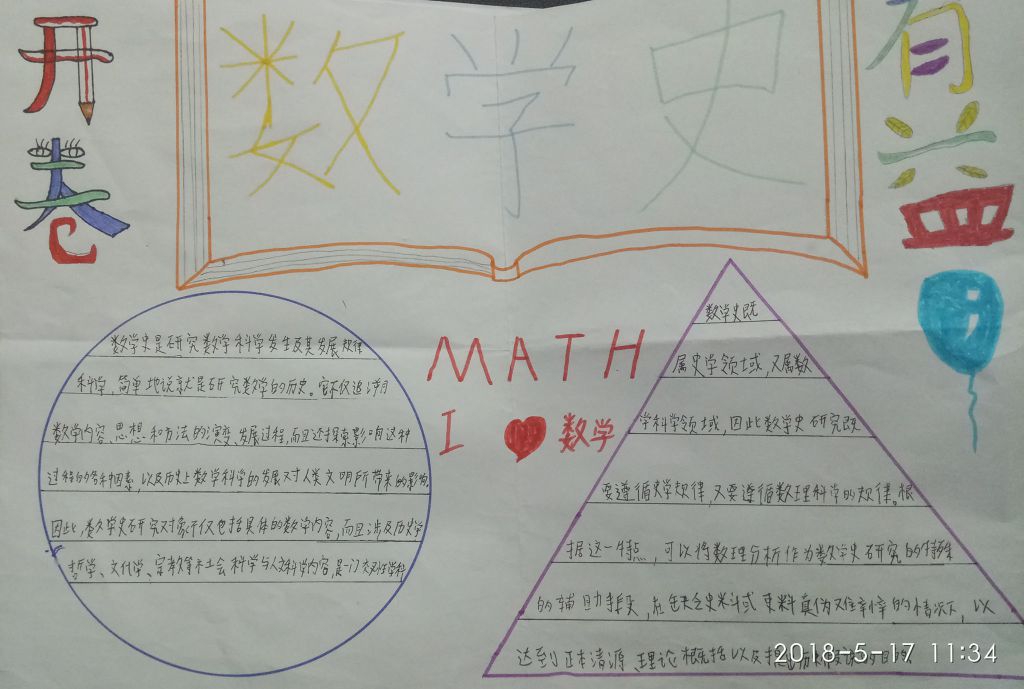 开卷有益
数学史
数学史是研究数学科学发生及其发展规律
科学,简单地说就是研究数学的历史。它不仅追溯
数学内容、思想和方法的演变、发展过程,而且还探索影响这种
过程的各种因素,以及历史上数学科学的发展对人类文明所带来的影响
因此,数学史研究对象不仅包括具体的数学内容,而且涉及历史学
哲学、文化学、宗教等社会科学与人文科学内容,是一门交叉性学科
MATH
I ❤ 数学
数学史既
属史学领域,又属数
学科学领域,因此数学史研究既
要遵循史学规律,又要遵循数理科学的规律。根
据这一特点,可以将数理分析作为数学史研究的特殊
的辅助手段,在缺乏史料或史料真伪难辨的情况下,以
达到正本清源 理论概括以及
2018-5-17 11:34